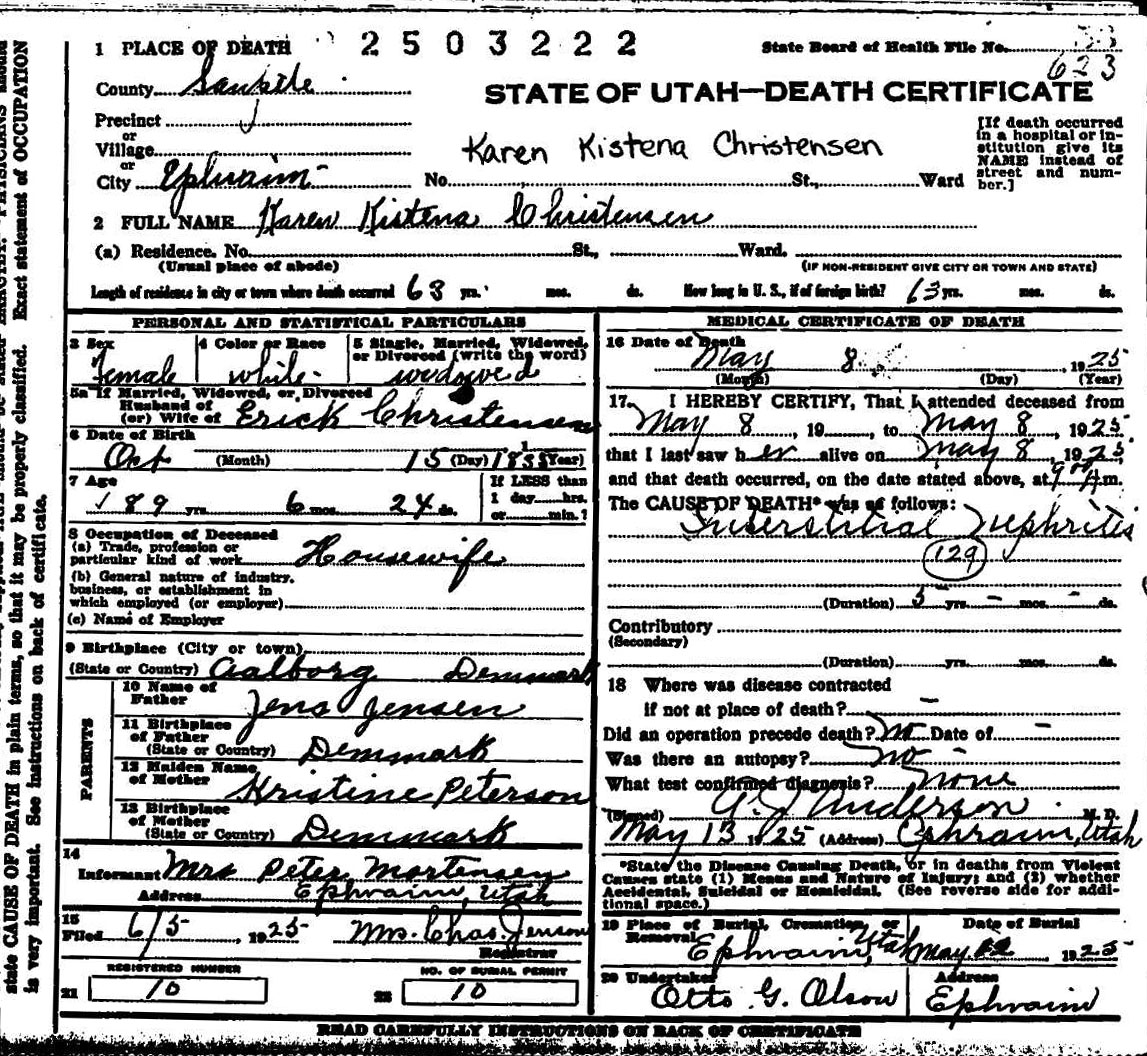 1 PLACE OF DEATH 2503222 State Board of Health File No. 33
623
County Sanpete
STATE OF UTAH—DEATH CERTIFICATE
Precinct
or
Village
or
City Ephraim No. St., Ward
Karen Kistena Christensen
[If death occurred
in a hospital or in-
stitution give its
NAME instead of
street and num-
ber.]
2 FULL NAME Karen Kistena Christensen
(a) Residence. No. St., Ward.
(Usual place of abode) (IF NON-RESIDENT GIVE CITY OR TOWN AND STATE)
Length of residence in city or town where death occurred 63 yrs. mos. ds. How long in U. S., if of foreign birth? 63 yrs. mos. ds.
PERSONAL AND STATISTICAL PARTICULARS
3 Sex 4 Color or Race 5 Single, Married, Widowed,
or Divorced (write the word)
Female white widowed
5a If Married, Widowed, or Divorced
Husband of
(or) Wife of Erick Christensen
6 Date of Birth
Oct (Month) 15 (Day) 1835 (Year)
7 Age If LESS than
89 yrs. 6 mos. 24 ds. 1 day hrs.
or min.?
8 Occupation of Deceased
(a) Trade, profession or
particular kind of work Housewife
(b) General nature of industry,
business, or establishment in
which employed (or employer)
(c) Name of Employer
9 Birthplace (City or town)
(State or Country) Aalborg Denmark
PARENTS
10 Name of
Father Jens Jensen
11 Birthplace
of Father
(State or Country) Denmark
12 Maiden Name
of Mother Kristine Peterson
13 Birthplace
of Mother
(State or Country) Denmark
14
Informant Mrs Peter Mortensen
Address Ephraim, Utah
15
Filed 6/5, 1925 Mrs. Chas. Jenson
Registrar
REGISTERED NUMBER NO. OF BURIAL PERMIT
21 10 22 10
MEDICAL CERTIFICATE OF DEATH
16 Date of Death
May 8 , 1925
(Month) (Day) (Year)
17. I HEREBY CERTIFY, That I attended deceased from
May 8, 19 , to May 8, 1925
that I last saw her alive on May 8, 1925,
and that death occurred, on the date stated above, at 9:00 A m.
The CAUSE OF DEATH* was as follows:
Interstitial Nephritis
129
(Duration) 5 yrs. - mos. - ds.
Contributory
(Secondary)
(Duration) yrs. mos. ds.
18 Where was disease contracted
if not at place of death? -
Did an operation precede death? No Date of -
Was there an autopsy? No -
What test confirmed diagnosis? none
(Signed) A. J. Anderson M. D.
May 13 1925 (Address) Ephraim, Utah
*State the Disease Causing Death, or in deaths from Violent
Causes state (1) Means and Nature of Injury; and (2) whether
Accidental, Suicidal or Homicidal. (See reverse side for addi-
tional space.)
19 Place of Burial, Cremation, or
Removal Date of Burial
Ephraim, Utah May 12 1925
20 Undertaker Address
Otto G. Olson Ephraim
READ CAREFULLY INSTRUCTIONS ON BACK OF CERTIFICATE
Exact statement of OCCUPATION
state CAUSE OF DEATH in plain terms, so that it may be properly classified.
is very important. See instructions on back of certificate.